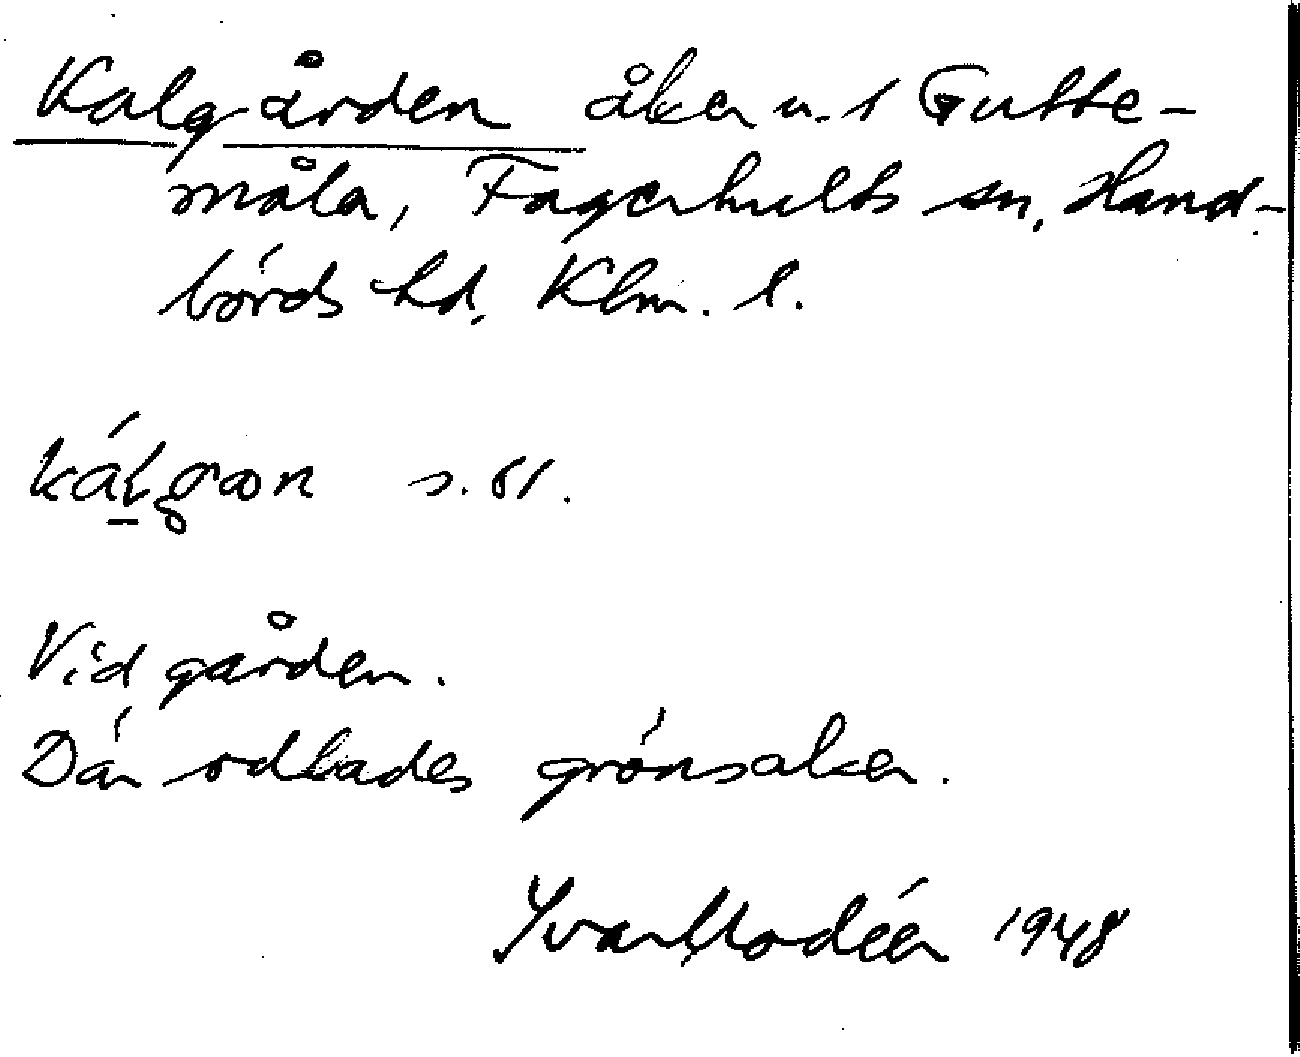 Kalgården åker u. 1 Gutte-
måla, Fagerhults sn, Hand-
börds hd, Klm. l.
s. 61.
Vid gården.
Där odlades grönsaker.
Ivar Modéer 1948